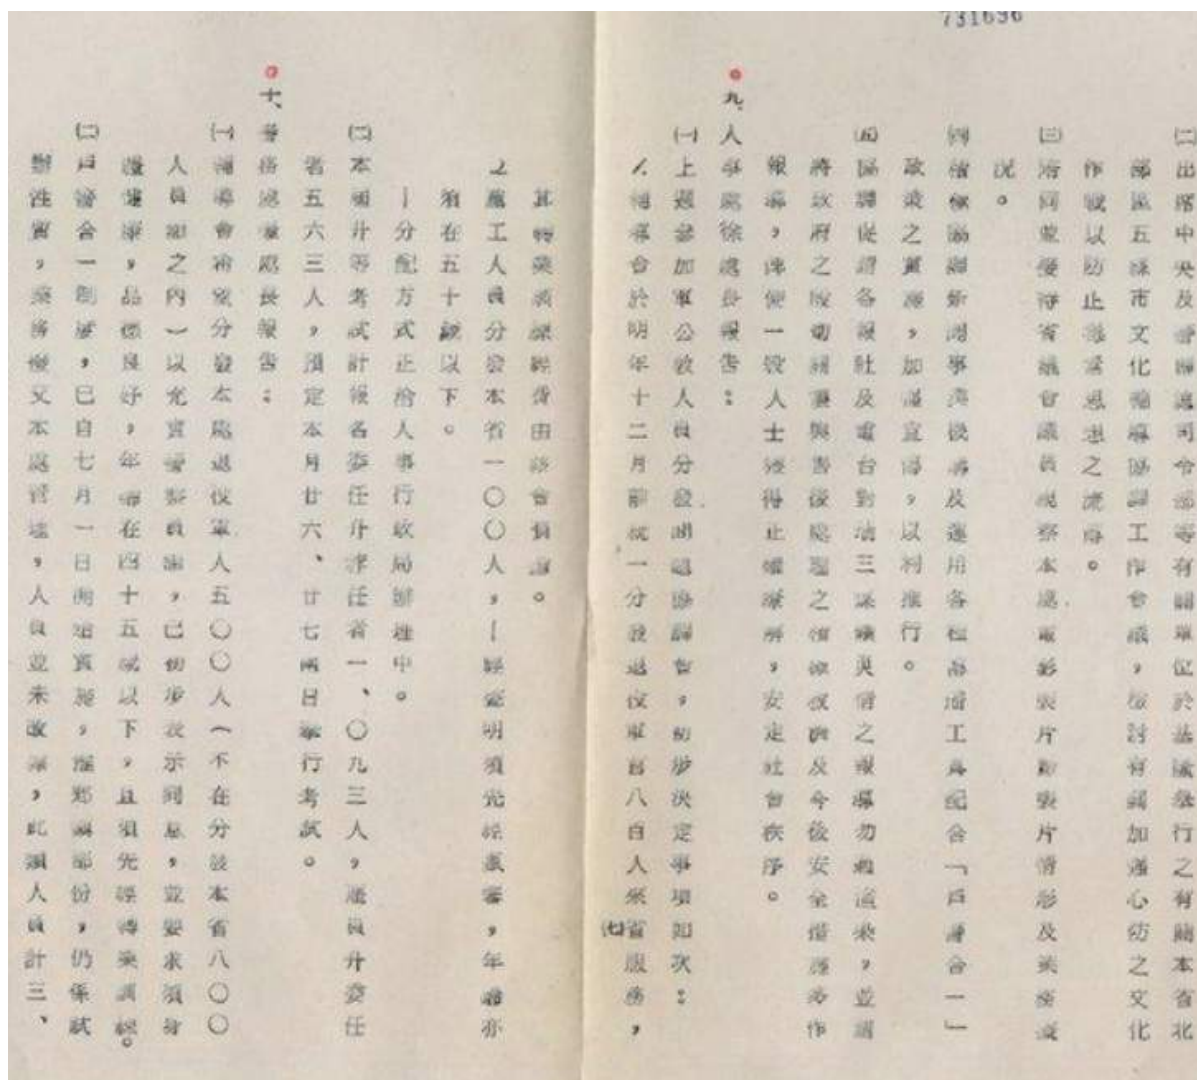 731696
㈡出席中央及警備總司令部等有關單位於基隆舉行之有關本省北
部區五縣市文化輔導協調工作會議,檢討有關加強心防之文化
作戰以防止毒素思想之流毒。
㈢陪同並接待省議會議員視察本處電影製片廠製片情形及業務概
況。
㈣積極協調新聞事業及運用各種工具配合「戶警合一」
政策之實施,加強宣導,以利推行。
㈤協調促請各報社及電台對三煤礦災情之報導勿過渲染,並請
將政府之救與善後處理之情形及今後安全措施多作
報導,俾使一般人士獲得正確瞭解,安定社會秩序。
九、人事處徐處長報告:
㈠上週參加軍公教人員分發問題協調會,初步決定事項如次:
1.輔導會於明年十二月前統一分發退役軍官八百人來省服務,
㈦
其轉業訓練經費由該會負擔。
2.雇工人員分發本省一〇〇人,|經說明須先經甄審,年齡亦
須在五十歲以下。
|分配方式正洽人事行政局辦理中。
㈡本項升等考試計報名委任升薦任者一、〇九三人,雇員升委任
者五六三人,預定本月廿六、廿七兩日舉行考試。
十、警務處處長報告:
㈠輔導會希望分發本處退役軍人五〇〇人(不在分發本省八〇〇
人員額之內)以充實警察員額,已初步表示同意,並要求須身
體健康,品德良好,年齡在四十五歲以下,且須先經轉業訓練。
㈡戶警合一制度,已自七月一日開始實施,部份,仍係試
辦性質,業務雖交本處管理,人員並未改隸,此項人員計三、